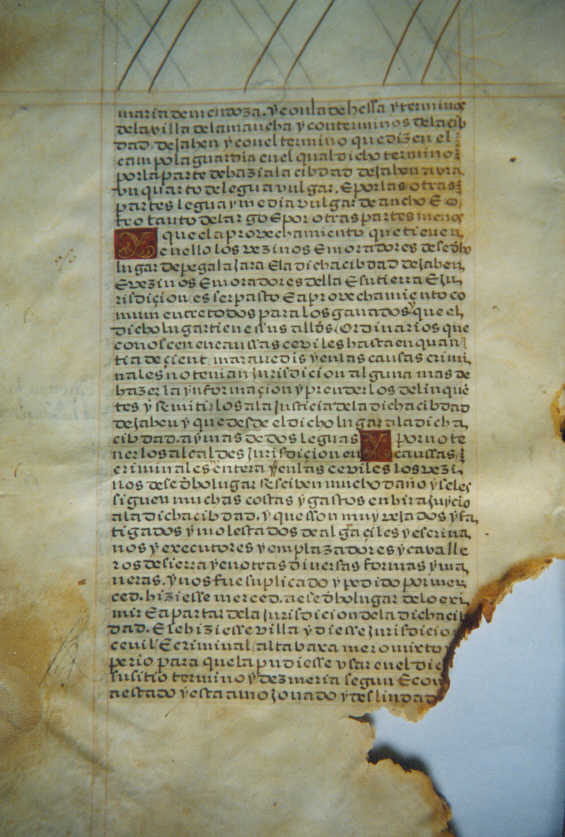 maria de mendoza. y con la dehessa y termino
dela villa dela mancha y con terminos dela cib
dad. de Jahen y con el termino que dizen el
campo la guardia en el qual dicho termino
por la parte de hazia la cibdad de Jahen avra
un quarto de legua vulgar. E por las otras
partes legua y media vulgar de ancho E o
tro tanto de largo E por otras partes menos
Y que el aprovechamiento que tienen
en ello los vezinos E moradores dese dho
lugar de pegalajara E la dicha cibdad de Jahen,
E vezinos E moradores della E su tierra E Ju
risdiçion, es ser pasto E aprovechamiento co
mun entre todos para los ganados y que el,
dicho lugar tiene sus allds, ordinarios que
conoscen en caussas ceviles hasta en quan
tia de çient. maravedis y en las causas crimi
nales no tenian Jurisdicion alguna mas de
hazer la ynformaçion y prender los delinque
tes y remitirlos ala Justicia dela dicha cibdad
de Jahen y que desde el dicho lugar ala dicha,
cibdad. ay mas de dos leguas Y por no te
ner los alcaldes Jurisdicion en caussas,
criminales entera y en las ceviles los vezi,
nos dese dho lugar resciben mucho daño y seles
siguen muchas costas y gastos en hir a Juycio
ala dicha cibdad. y que sson muy vejados y fa
tigados y molestados de algaçiles y escriva,
nos y executores y emplazadores y cavalle
ros de sierra y en otras diversas formas y ma
neras. y nos fue suplicado y pedido por mer,
ced. hiziesse merced. a ese dho lugar delo exi
mir E apartar dela Jurisdicion dela dicha cib
dad. E se hiziesse villa y diesse Jurisdicio
cevil E criminal alta baxa mero mixto y
perio para que la pudiesse usar en el dic
su sitio termino y dezmeria segun E com
aestado y esta amojonado y deslindad